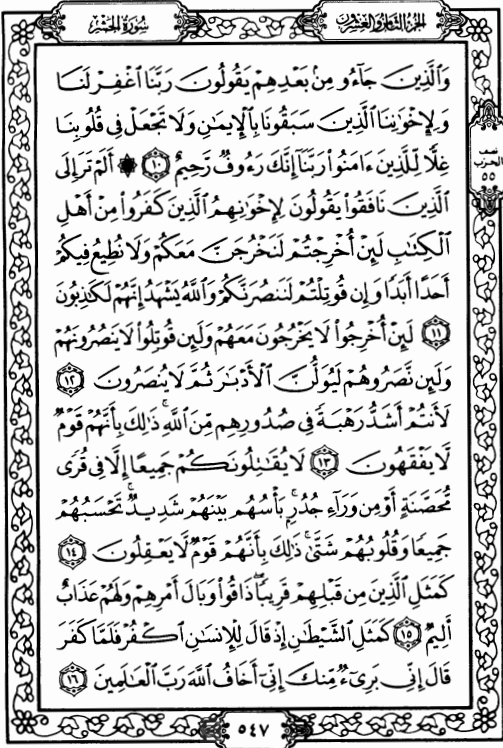 سُورَةُ الحَشْرِ
الجُزْءُ الثَّامِنُ وَالعِشْرُونَ
نصف
الحزب
٥٥
وَٱلَّذِينَ جَآءُو مِنۢ بَعْدِهِمْ يَقُولُونَ رَبَّنَا ٱغْفِرْ لَنَا
وَلِإِخْوَٰنِنَا ٱلَّذِينَ سَبَقُونَا بِٱلْإِيمَٰنِ وَلَا تَجْعَلْ فِى قُلُوبِنَا
غِلًّا لِّلَّذِينَ ءَامَنُوا۟ رَبَّنَآ إِنَّكَ رَءُوفٌ رَّحِيمٌ ١٠ ۞ أَلَمْ تَرَ إِلَى
ٱلَّذِينَ نَافَقُوا۟ يَقُولُونَ لِإِخْوَٰنِهِمُ ٱلَّذِينَ كَفَرُوا۟ مِنْ أَهْلِ
ٱلْكِتَٰبِ لَئِنْ أُخْرِجْتُمْ لَنَخْرُجَنَّ مَعَكُمْ وَلَا نُطِيعُ فِيكُمْ
أَحَدًا أَبَدًا وَإِن قُوتِلْتُمْ لَنَنصُرَنَّكُمْ وَٱللَّهُ يَشْهَدُ إِنَّهُمْ لَكَٰذِبُونَ
١١ لَئِنْ أُخْرِجُوا۟ لَا يَخْرُجُونَ مَعَهُمْ وَلَئِن قُوتِلُوا۟ لَا يَنصُرُونَهُمْ
وَلَئِن نَّصَرُوهُمْ لَيُوَلُّنَّ ٱلْأَدْبَٰرَ ثُمَّ لَا يُنصَرُونَ ١٢
لَأَنتُمْ أَشَدُّ رَهْبَةً فِى صُدُورِهِم مِّنَ ٱللَّهِ ۚ ذَٰلِكَ بِأَنَّهُمْ قَوْمٌ
لَّا يَفْقَهُونَ ١٣ لَا يُقَٰتِلُونَكُمْ جَمِيعًا إِلَّا فِى قُرًى
مُّحَصَّنَةٍ أَوْ مِن وَرَآءِ جُدُرٍۭ ۚ بَأْسُهُم بَيْنَهُمْ شَدِيدٌ ۚ تَحْسَبُهُمْ
جَمِيعًا وَقُلُوبُهُمْ شَتَّىٰ ۚ ذَٰلِكَ بِأَنَّهُمْ قَوْمٌ لَّا يَعْقِلُونَ ١٤
كَمَثَلِ ٱلَّذِينَ مِن قَبْلِهِمْ قَرِيبًا ۖ ذَاقُوا۟ وَبَالَ أَمْرِهِمْ وَلَهُمْ عَذَابٌ
أَلِيمٌ ١٥ كَمَثَلِ ٱلشَّيْطَٰنِ إِذْ قَالَ لِلْإِنسَٰنِ ٱكْفُرْ فَلَمَّا كَفَرَ
قَالَ إِنِّى بَرِىٓءٌ مِّنكَ إِنِّىٓ أَخَافُ ٱللَّهَ رَبَّ ٱلْعَٰلَمِينَ ١٦
٥٤٧